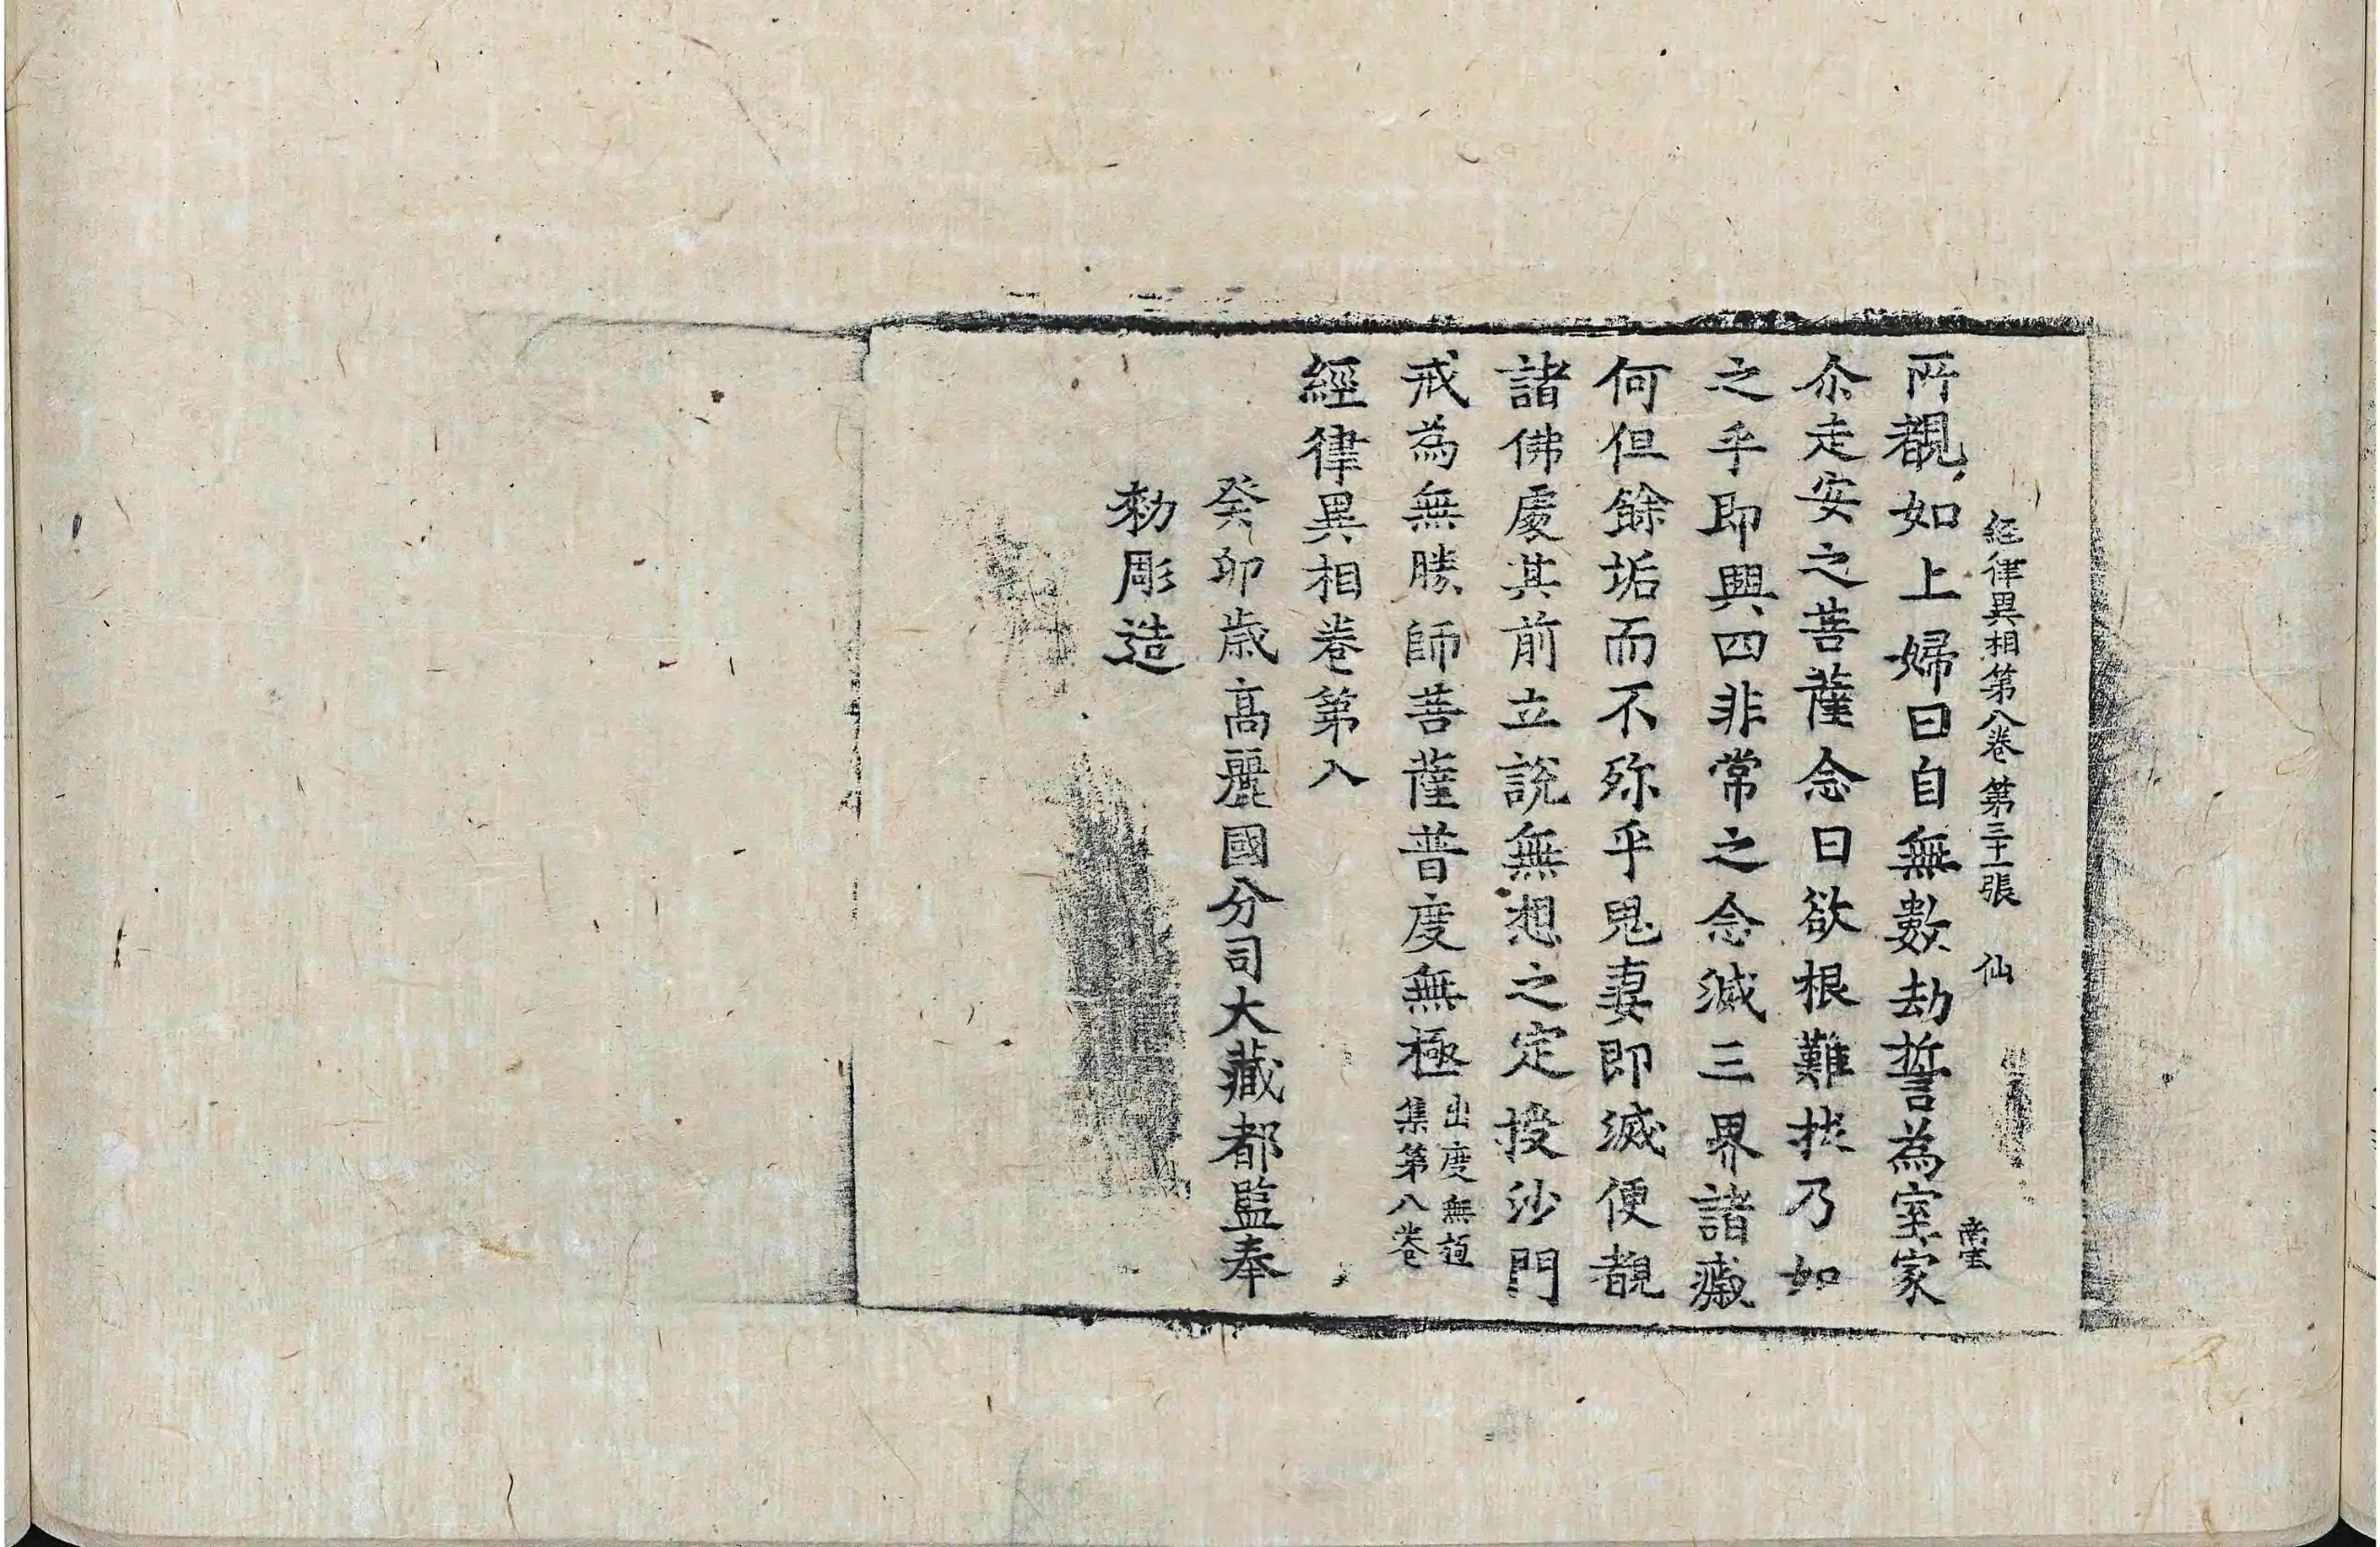 經律異相第八卷 第三十一張 仙
所覩如上婦曰自無數劫誓為室家
尒走安之菩薩念曰欲根難拔乃如
之乎即興四非常之念滅三界諸穢
何但餘垢而不殄乎鬼妻即滅便覩
諸佛處其前立說無想之定授沙門
戒為無勝師菩薩普度無極 出度無極集第八卷
經律異相卷第八
癸卯歳高麗國分司大藏都監奉
勅彫造